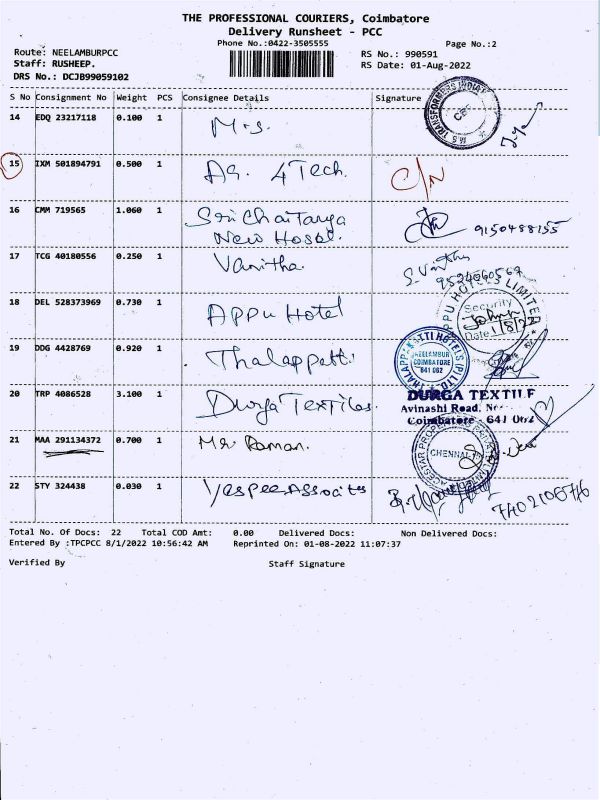 THE PROFESSIONAL COURIERS, Coimbatore
Delivery Runsheet - PCC
Phone No.:0422-3505555
Page No.:2
Route: NEELAMBURPCC
RS No.: 990591
Staff: RUSHEEP.
RS Date: 01-Aug-2022
DRS No.: DCJB99059102
S No Consignment No Weight PCS Consignee Details Signature
14 EDQ 23217118 0.100 1 M.S.
M.S TRANSFORMERS INDIA
15 IXM 501894791 0.500 1 AG. 4 Tech. C/N
16 CMM 719565 1.060 1 Sri Chaitanya
New Hosel. 9150488155
17 TCG 40180556 0.250 1 Vanitha
18 DEL 528373969 0.730 1 APPU Hotel
APPU HOTELS LIMITED
Security
Date 1/8/22
19 DDG 4428769 0.920 1 Thalappatti
THALAPPAKATTI HOTELS (P) LTD
NEELAMBUR
COIMBATORE
641 062
20 TRP 4086528 3.100 1 Durga Textiles.
DURGA TEXTILE
Avinashi Road,
Coimbatore - 641 062
21 MAA 291134372 0.700 1 Mr Raman.
CHENNAI
22 STY 324438 0.030 1 Yespee Associts
Total No. Of Docs: 22 Total COD Amt: 0.00 Delivered Docs: Non Delivered Docs:
Entered By :TPCPCC 8/1/2022 10:56:42 AM Reprinted On: 01-08-2022 11:07:37
Verified By Staff Signature